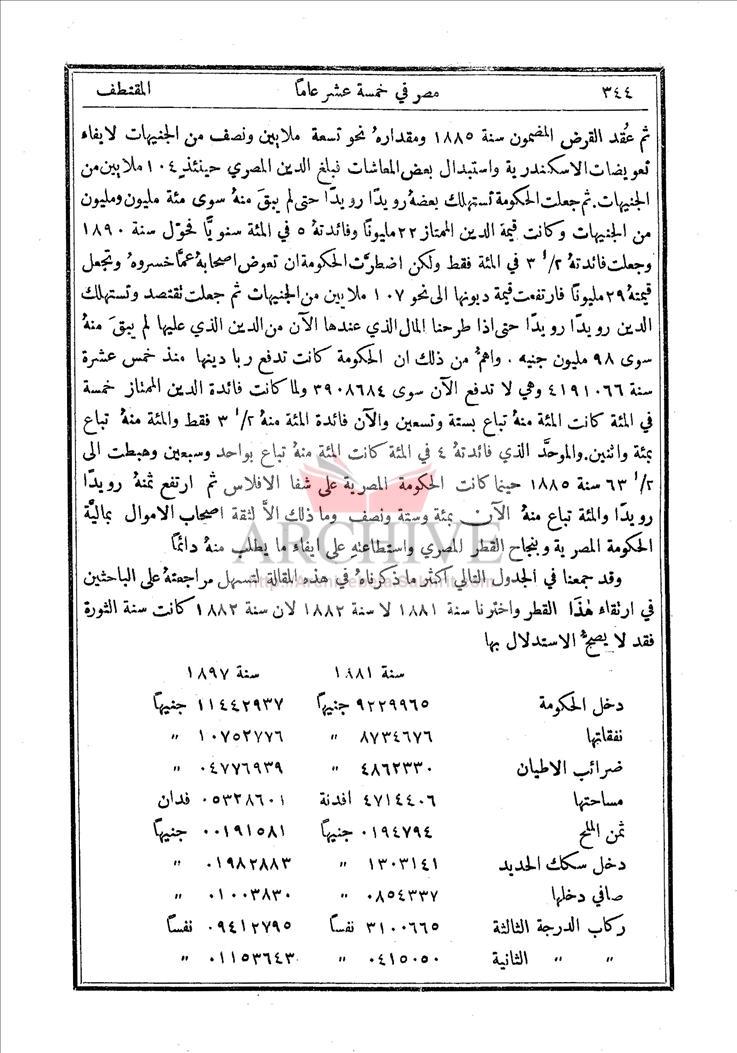 ٣٤٤ مصر في خمسة عشر عاماً المقتطف
ثم عُقد القرض المضمون سنة ١٨٨٥ ومقدارهُ نحو تسعة ملايين ونصف من الجنيهات لايفاء
تعويضات الاسكندرية واستبدال بعض المعاشات فبلغ الدين المصري حينئذٍ ١٠٤ ملايين من
الجنيهات. ثم جعلت الحكومة تستهلك بعضهُ رويدًا رويدًا حتى لم يبقَ منهُ سوى مئة مليون ومليون
من الجنيهات وكانت قيمة الدين الممتاز ٢٢ مليونًا وفائدتهُ ٥ في المئة سنويًّا فحوّل سنة ١٨٩٠
وجعلت فائدتهُ ١/٢ ٣ في المئة فقط ولكن اضطرَّت الحكومة ان تعوض اصحابهُ عمَّا خسروهُ وتجعل
قيمتهُ ٢٩ مليونًا فارتفعت قيمة ديونها الى نحو ١٠٧ ملايين من الجنيهات ثم جعلت تقتصد وتستهلك
الدين رويدًا رويدًا حتى اذا طرحنا المال الذي عندها الآن من الدين الذي عليها لم يبقَ منهُ
سوى ٩٨ مليون جنيه . واهمُّ من ذلك ان الحكومة كانت تدفع ربا دينها منذ خمس عشرة
سنة ٤١٩١٠٦٦ وهي لا تدفع الآن سوى ٣٩٠٨٦٨٤ ولما كانت فائدة الدين الممتاز خمسة
في المئة كانت المئة منهُ تباع بستة وتسعين والآن فائدة المئة منهُ ١/٢ ٣ فقط والمئة منهُ تباع
بمئة واثنين. والموحَّد الذي فائدتهُ ٤ في المئة كانت المئة منهُ تباع بواحد وسبعين وهبطت الى
١/٢ ٦٣ سنة ١٨٨٥ حينما كانت الحكومة المصرية على شفا الافلاس ثم ارتفع ثمنهُ رويدًا
رويدًا والمئة تباع منهُ الآن بمئة وستة ونصف وما ذلك الاَّ لثقة اصحاب الاموال بماليَّة
الحكومة المصرية وبنجاح القطر المصري واستطاعتهِ على ايفاء ما يطلب منهُ دائمًا
وقد جمعنا في الجدول التالي اكثر ما ذكرناهُ في هذه المقالة لتسهل مراجعتهُ على الباحثين
في ارتقاء هٰذَا القطر واخترنا سنة ١٨٨١ لا سنة ١٨٨٢ لان سنة ١٨٨٢ كانت سنة الثورة
فقد لا يصحُّ الاستدلال بها
سنة ١٨٨١ سنة ١٨٩٧
دخل الحكومة ٩٢٢٩٩٦٥ جنيهًا ١١٤٤٢٩٣٧ جنيهًا
نفقاتها ٨٧٣٤٦٧٦ " ١٠٧٥٢٧٧٦ "
ضرائب الاطيان ٤٨٦٢٣٣٠ " ٠٤٧٧٦٩٣٩ "
مساحتها ٤٧١٤٤٠٦ افدنة ٠٥٣٢٨٦٠١ فدان
ثمن الملح ٠١٩٤٧٩٤ جنيهًا ٠٠١٩١٥٨١ جنيهًا
دخل سكك الحديد ١٣٠٣١٤١ " ٠١٩٨٢٨٨٣ "
صافي دخلها ٠٨٥٤٣٣٧ " ٠١٠٠٣٨٣٠ "
ركاب الدرجة الثالثة ٣١٠٠٦٦٥ نفسًا ٠٩٤١٢٧٩٥ نفسًا
" " الثانية ٠٤١٥٠٥٠ " ٠١١٥٣٦٤٣ "
ARCHIVE